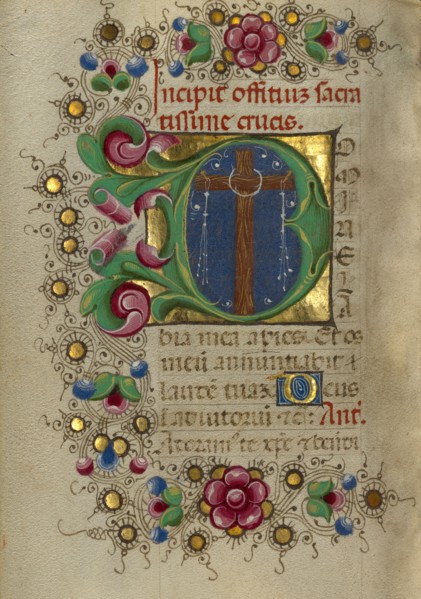 Incipit offitiuz sacra
tissime crucis.
D
O
M
I
N
E
L
A
bia mea apies. Et os
meū annuntiabit
laudē tuaz Deus
ī adiutoriū Ant.
Adoram te xpe